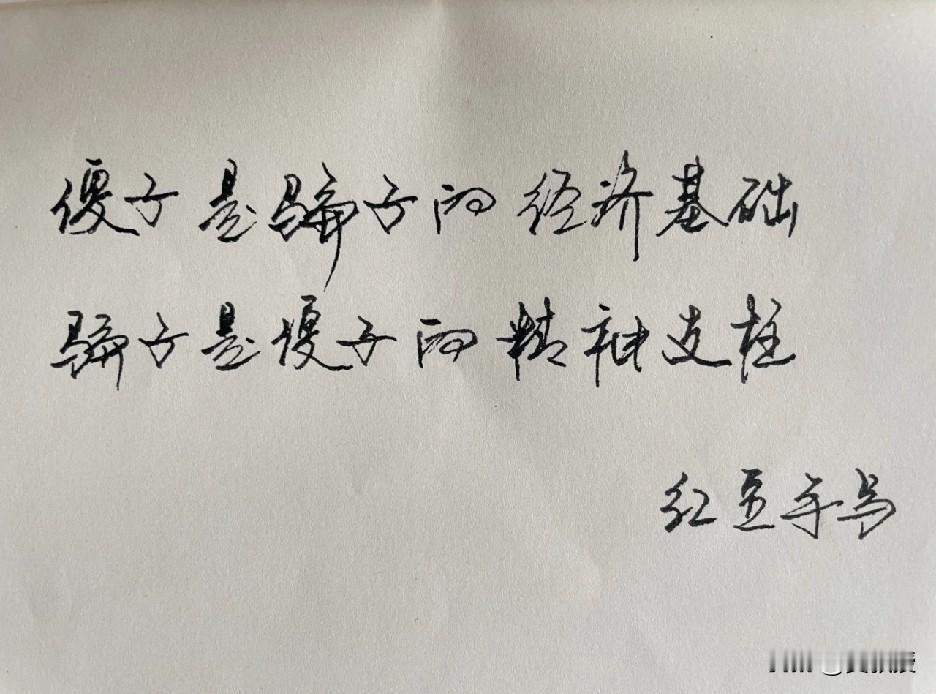 傻子是骗子的经济基础
骗子是傻子的精神支柱
红豆手写